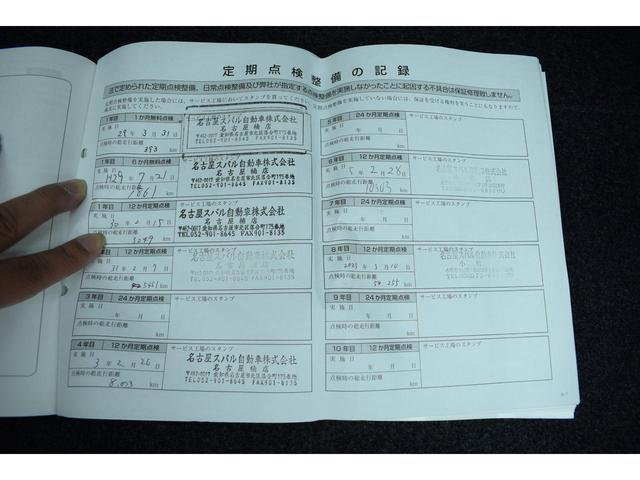 定期点検整備の記録
法で定められた定期点検整備、日常点検整備及び弊社が指定する点検整備を実施しなかったことに起因する不具合は保証修理致しません。
定期点検整備を実施した場合には、サービス工場においてスタンプを貰ってください。定期点検整備を実施していない場合には、保証を受ける権利を失うことにもなりますので、
確実に実施してください。
1年目 1か月無料点検 サービス工場のスタンプ
実施日 29年3月31日
点検時の総走行距離
393 km
名古屋スバル自動車株式会社
名古屋楠店
〒462-0017 愛知県名古屋市北区落合町175番地
TEL052-901-8645 FAX901-8135
1年目 6か月無料点検 サービス工場のスタンプ
7月21日
点検時の総走行距離
km
名古屋スバル自動車株式会社
名古屋楠店
〒462-0017 愛知県名古屋市北区落合町175番地
TEL052-901-8645 FAX901-8135
1年目 12か月定期点検 サービス工場のスタンプ
実施日 30年2月15日
点検時の総走行距離
km
名古屋スバル自動車株式会社
名古屋楠店
〒462-0017 愛知県名古屋市北区落合町175番地
TEL052-901-8645 FAX901-8135
12か月定期点検 サービス工場のスタンプ
31年2月7日
点検時の総走行距離
km
名古屋スバル自動車株式会社
名古屋楠店
3年目 24か月定期点検 サービス工場のスタンプ
実施日 年 月 日
点検時の総走行距離
km
4年目 12か月定期点検 サービス工場のスタンプ
実施日 3年2月26日
点検時の総走行距離
km
名古屋スバル自動車株式会社
名古屋楠店
〒462-0017 愛知県名古屋市北区落合町175番地
TEL052-901-8645 FAX901-8135
5年目 24か月定期点検 サービス工場のスタンプ
実施日 年 月 日
点検時の総走行距離
km
6年目 12か月定期点検 サービス工場のスタンプ
実施日 5年2月28日
点検時の総走行距離
10303 km
7年目 24か月定期点検 サービス工場のスタンプ
実施日 年 月 日
点検時の総走行距離
km
8年目 12か月定期点検 サービス工場のスタンプ
実施日 年3月14日
点検時の総走行距離
km
名古屋スバル自動車株式会社
9年目 24か月定期点検 サービス工場のスタンプ
実施日 年 月 日
点検時の総走行距離
km
10年目 12か月定期点検 サービス工場のスタンプ
実施日 年 月 日
点検時の総走行距離
km